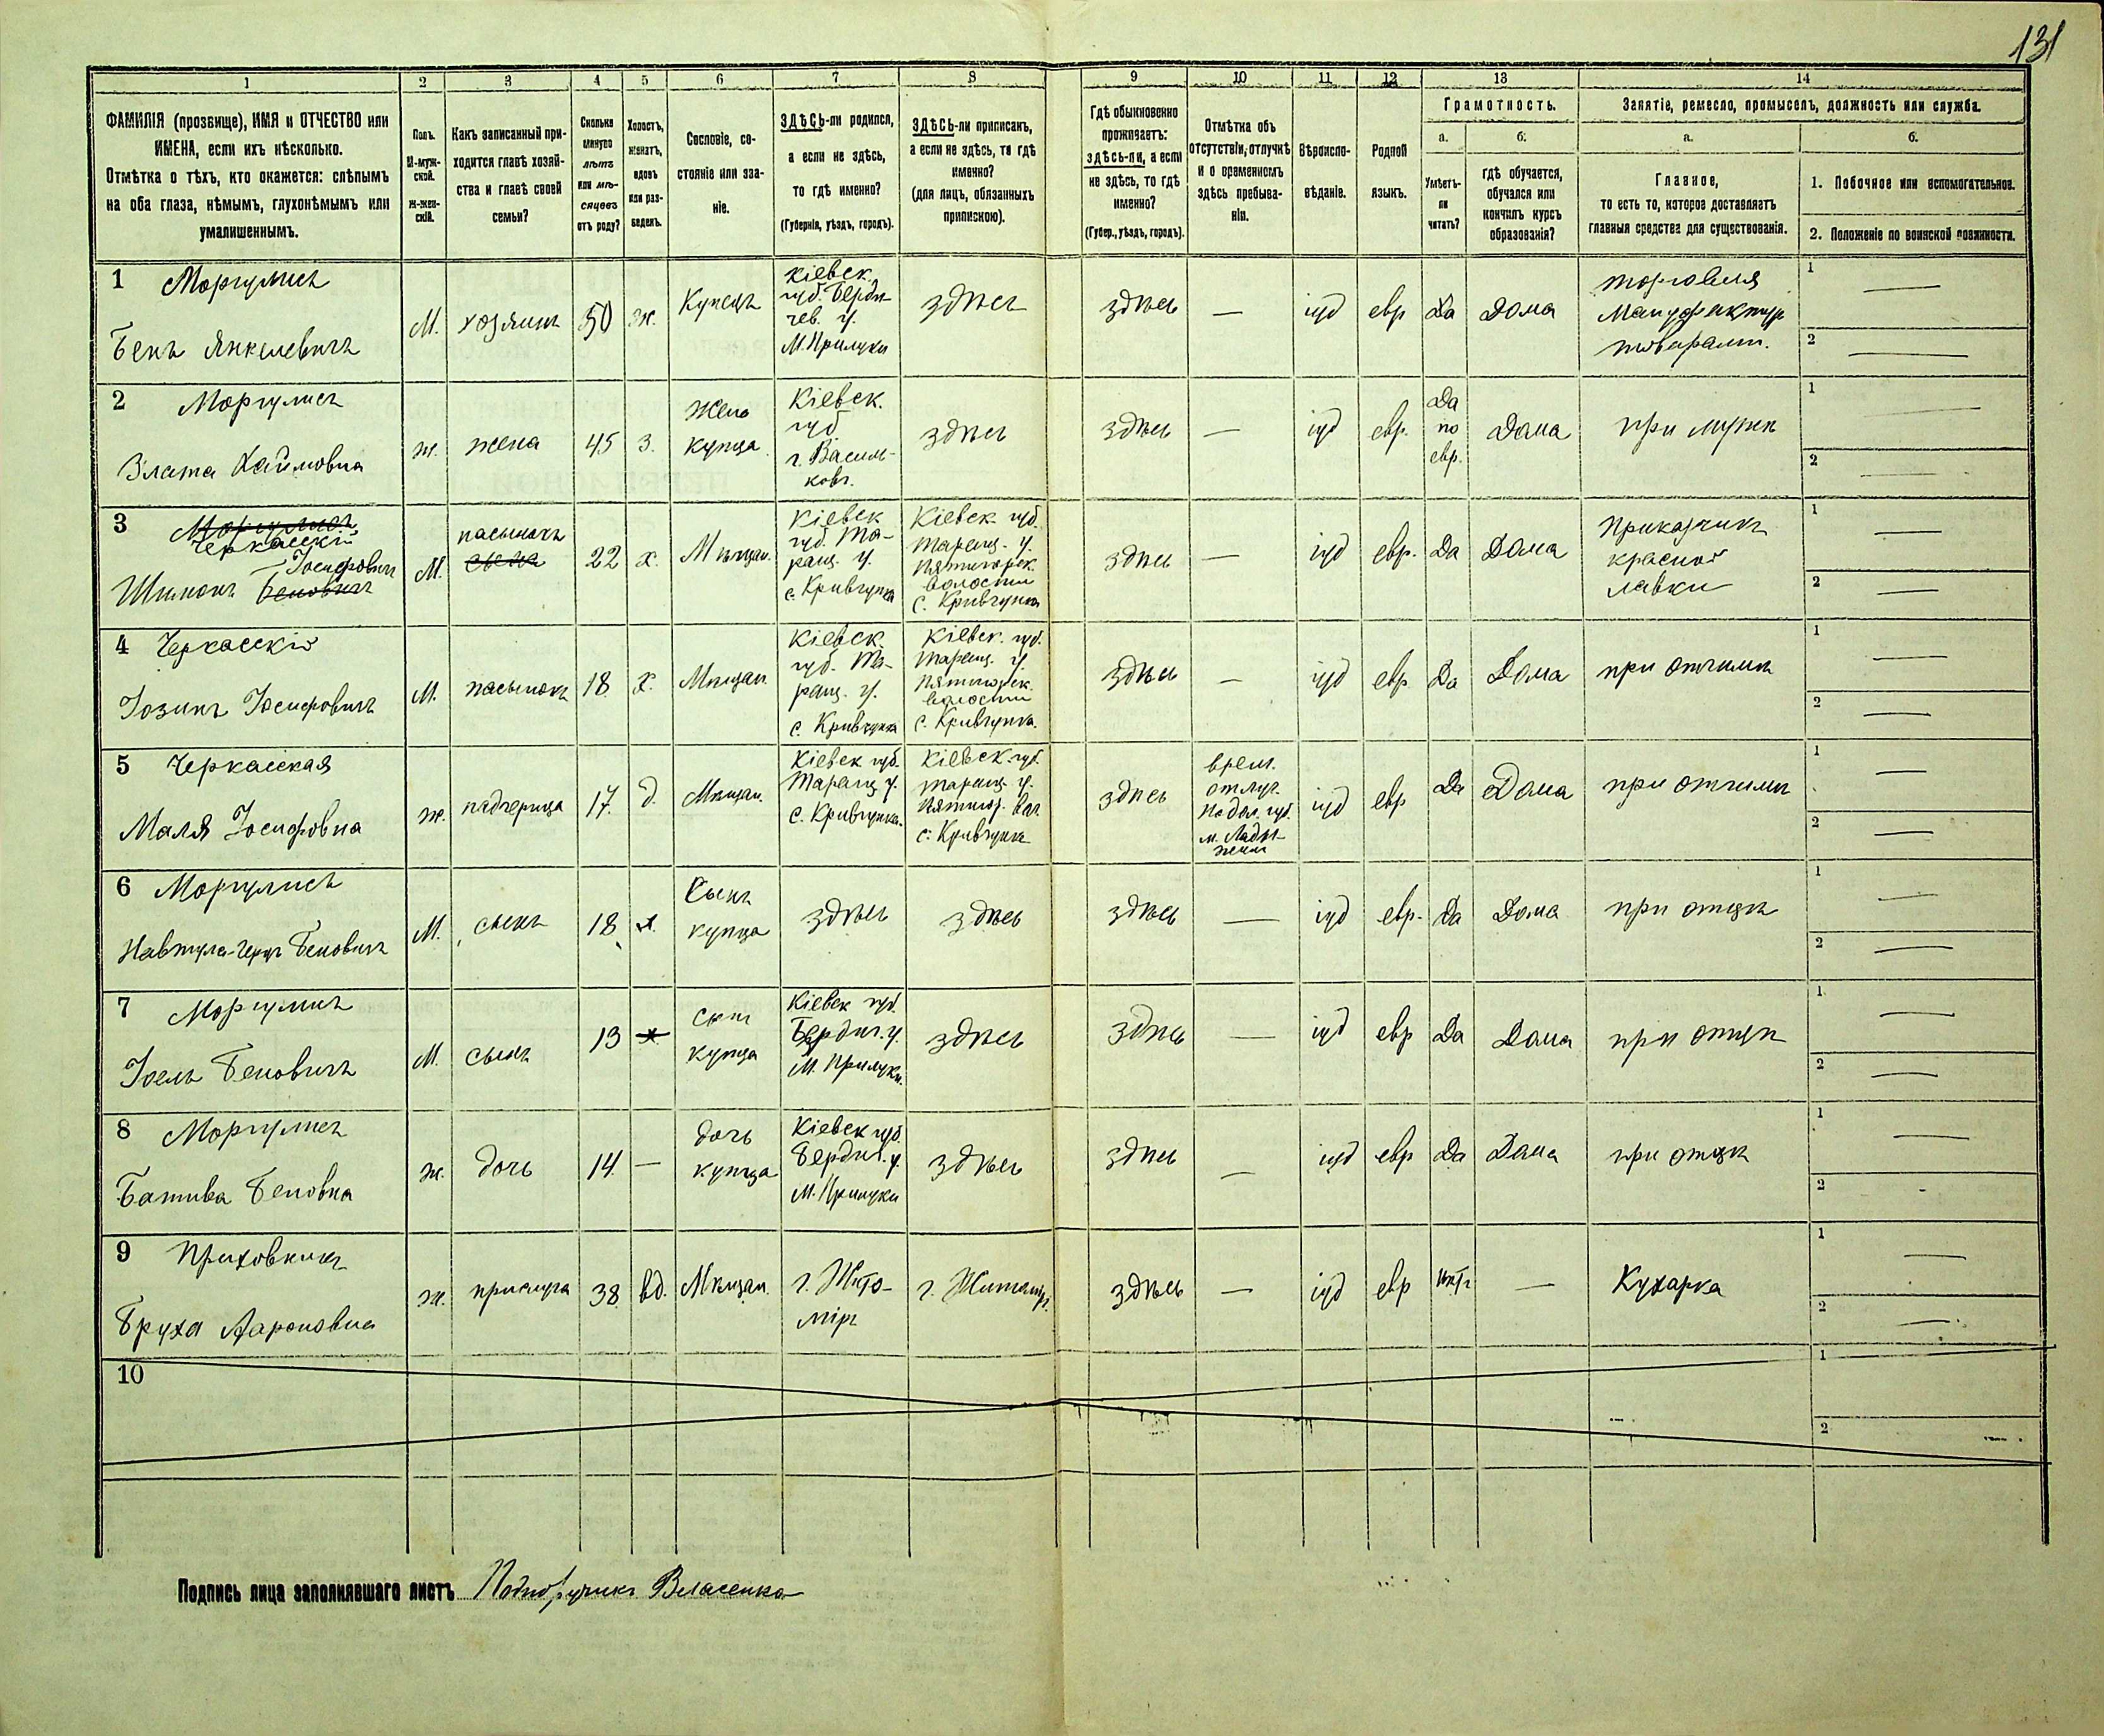 131
1
2
3
4
5
6
7
8
9
10
11
12
13
14
ФАМИЛІЯ (прозвище), ИМЯ и ОТЧЕСТВО или
ИМЕНА, если ихъ нѣсколько.
Отмѣтка о тѣхъ, кто окажется: слѣпымъ
на оба глаза, нѣмымъ, глухонѣмымъ или
умалишеннымъ.
Полъ.
М-муж-
ской.
Ж-жен-
скій.
Какъ записанный при-
ходится главѣ хозяй-
ства и главѣ своей
семьи?
Сколько
минуло
лѣтъ
или мѣ-
сяцевъ
отъ роду?
Холостъ,
женатъ,
вдовъ
или раз-
веденъ.
Сословіе, со-
стояніе или зва-
ніе.
ЗДѢСЬ-ли родился,
а если не здѣсь,
то гдѣ именно?
(Губернія, уѣздъ, городъ).
ЗДѢСЬ-ли приписанъ,
а если не здѣсь, то гдѣ
именно?
(для лицъ, обязанныхъ
припискою).
Гдѣ обыкновенно
проживаетъ:
здѣсь-ли, а если
не здѣсь, то гдѣ
именно?
(Губер., уѣздъ, городъ).
Отмѣтка объ
отсутствіи, отлучкѣ
и о временномъ
здѣсь пребыва-
ніи.
Вѣроиспо-
вѣданіе.
Родной
языкъ.
Грамотность.
а.
Умѣетъ-
ли
читать?
б.
гдѣ обучается,
обучался или
кончилъ курсъ
образованія?
Занятіе, ремесло, промыселъ, должность или служба.
а.
Главное,
то есть то, которое доставляетъ
главныя средства для существованія.
б.
1. Побочное или вспомогательное.
2. Положеніе по воинской повинности.
1 Моргулисъ
Бенъ Янкелевичъ
М.
хозяинъ
50
ж.
Купецъ
Кіевск.
губ. Берди-
чев. у.
М. Прилуки
здѣсь
здѣсь
—
іуд
евр
Да
Дома
торговля
Мануфактур
товарами.
1 —
2 —
2 Моргулисъ
Злата Хаимовна
ж.
жена
45
З.
Жена
купца
Кіевск.
губ
г. Василь-
ковъ.
здѣсь
здѣсь
—
іуд
евр.
Да
по
евр.
Дома
при мужѣ
1 —
2 —
3 Моргулисъ
Черкасскій
Іосифовичъ
Шимонъ Беновичъ
М.
пасынокъ
сынъ
22
х.
Мѣщан.
Кіевск
губ. Та-
ращ. у.
с. Кривчунка
Кіевск. губ.
Таращ. у.
Пятигорск.
волости
с. Кривчунка
здѣсь
—
іуд
евр.
Да
Дома
Приказчикъ
красной
лавки
1 —
2 —
4 Черкасскій
Іозинъ Іосифовичъ
М.
пасынокъ
18
х.
Мѣщан.
Кіевск.
губ. Та-
ращ. у.
с. Кривчунка
Кіевск. губ.
Таращ. у.
Пятигорск.
волости
с. Кривчунка.
здѣсь
—
іуд
евр
Да
Дома
при отчимѣ
1 —
2 —
5 Черкасская
Маля Іосифовна
ж.
падчерица
17.
д.
Мѣщан.
Кіевск губ.
Таращ у.
с. Кривчунка.
Кіевск губ.
таращ. у.
Пятигор. вол.
с. Кривчунка
здѣсь
врем.
отлуч.
Подол. губ.
м. Лады-
жинъ
іуд
евр
Да
Дома
при отчимѣ
1 —
2 —
6 Моргулисъ
Навтула-Герцъ Беновичъ
М.
сынъ
18
х.
Сынъ
купца
здѣсь
здѣсь
здѣсь
—
іуд
евр.
Да
Дома
при отцѣ
1 —
2 —
7 Моргулисъ
Іоель Беновичъ
М.
сынъ
13
х.
сынъ
купца
Кіевск губ.
Бердич. у.
М. Прилуки.
здѣсь
здѣсь
—
іуд
евр
Да
Дома
при отцѣ
1 —
2 —
8 Моргулисъ
Батива Беновна
ж.
дочь
14.
—
дочь
купца
Кіевск губ.
Бердич. у.
М. Прилуки
здѣсь
здѣсь
—
іуд
евр
Да
Дома
при отцѣ
1 —
2 -
9
Бруха Аароновна
ж.
прислуга
38
вд.
Мѣщан.
г. Жито-
міръ
г. Житомір.
здѣсь
—
іуд
евр
нѣтъ
—
Кухарка
1 —
2 —
10
1
2
Подпись лица заполнявшаго листъ Подпоручикъ Власенко